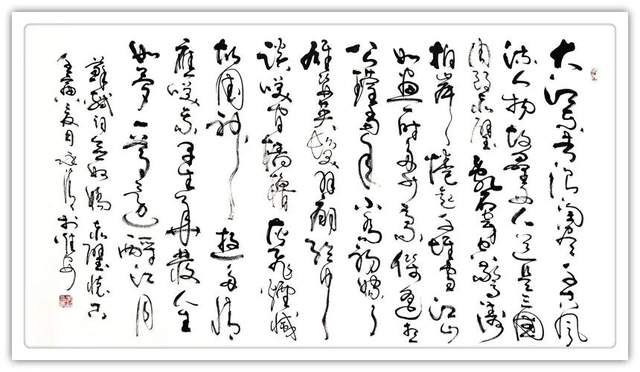 大江東去浪淘盡千古風
流人物故壘西邊人道是三國
周郎赤壁亂石穿空驚濤
拍岸捲起千堆雪江山
如畫一時多少豪傑遥想
公瑾當年小喬初嫁了
雄姿英發羽扇綸巾
談笑間檣櫓灰飛煙滅
故國神遊多情
應笑我早生華髮人生
如夢一尊還酹江月
蘇軾詞念奴嬌赤壁懷古
夏月